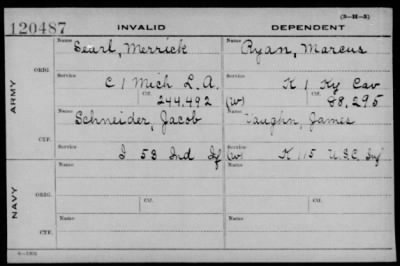 (3-H-3)
120487 INVALID DEPENDENT
Name Name
Searl, Merrick Ryan, Marcus
ORIG. Service Service
C 1 Mich L. A. K 1 Ky Cav
Ctf. 244,492 (W) Ctf. 88,295
ARMY
Name Name
Schneider, Jacob Vaughn, James
CTF. Service Service
I 53 Ind Inf (W) K 115 U.S.C. Inf
Name Name
ORIG.
Ctf. Ctf.
NAVY
Name Name
CTF.